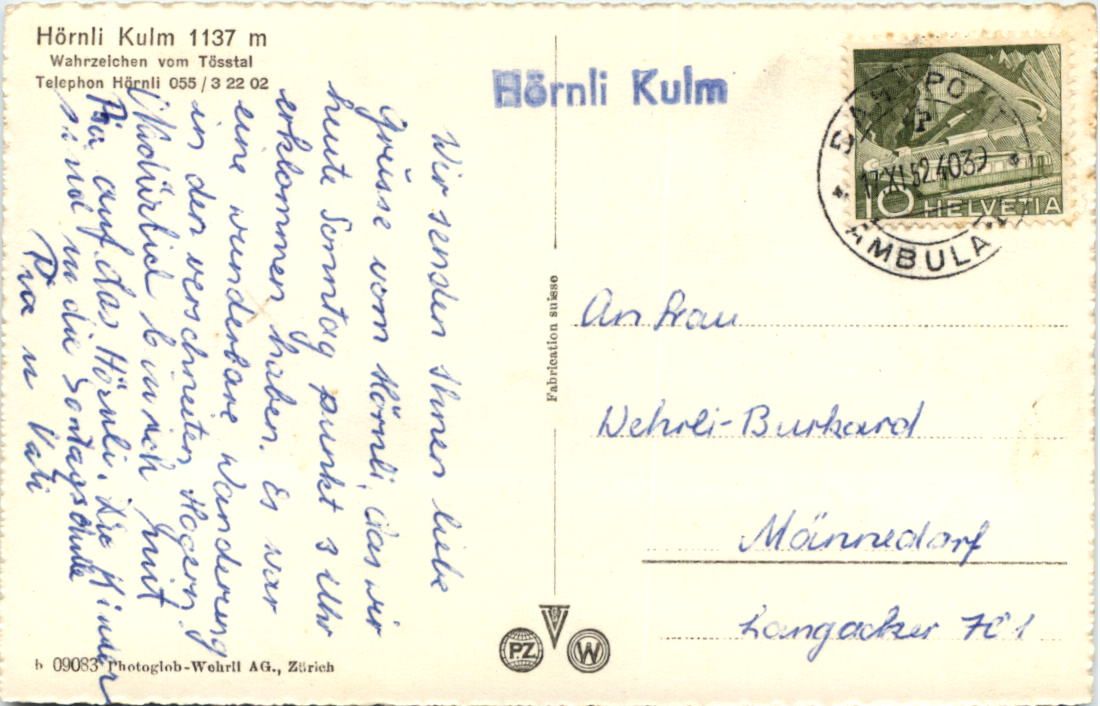 Hörnli Kulm 1137 m
Wahrzeichen vom Tösstal
Telephon Hörnli 055 / 3 22 02
Wir senden Ihnen liebe
Grüsse vom Hörnli, das wir
heute Sonntag punkt 3 Uhr
erklommen haben. Es war
eine wunderbare Wanderung
in den verschneiten Hogern.
Natürlich bin ich mit
Pia auf das Hörnli. Die Kinder
sind in die Sontagschule
Pia u Vati
Hörnli Kulm
BAHNPOST
17.XI.52.4039
AMBULANT
10 HELVETIA
An Frau
Wehrli-Burkard
Männedorf
Langacker 701
Fabrication suisse
PZ
V
W
b 09083 Photoglob-Wehrli AG., Zürich